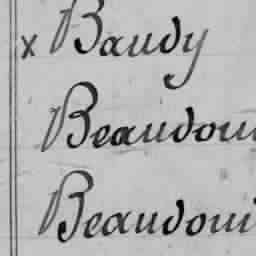 x Baudy
Beaudoui
Beaudoui